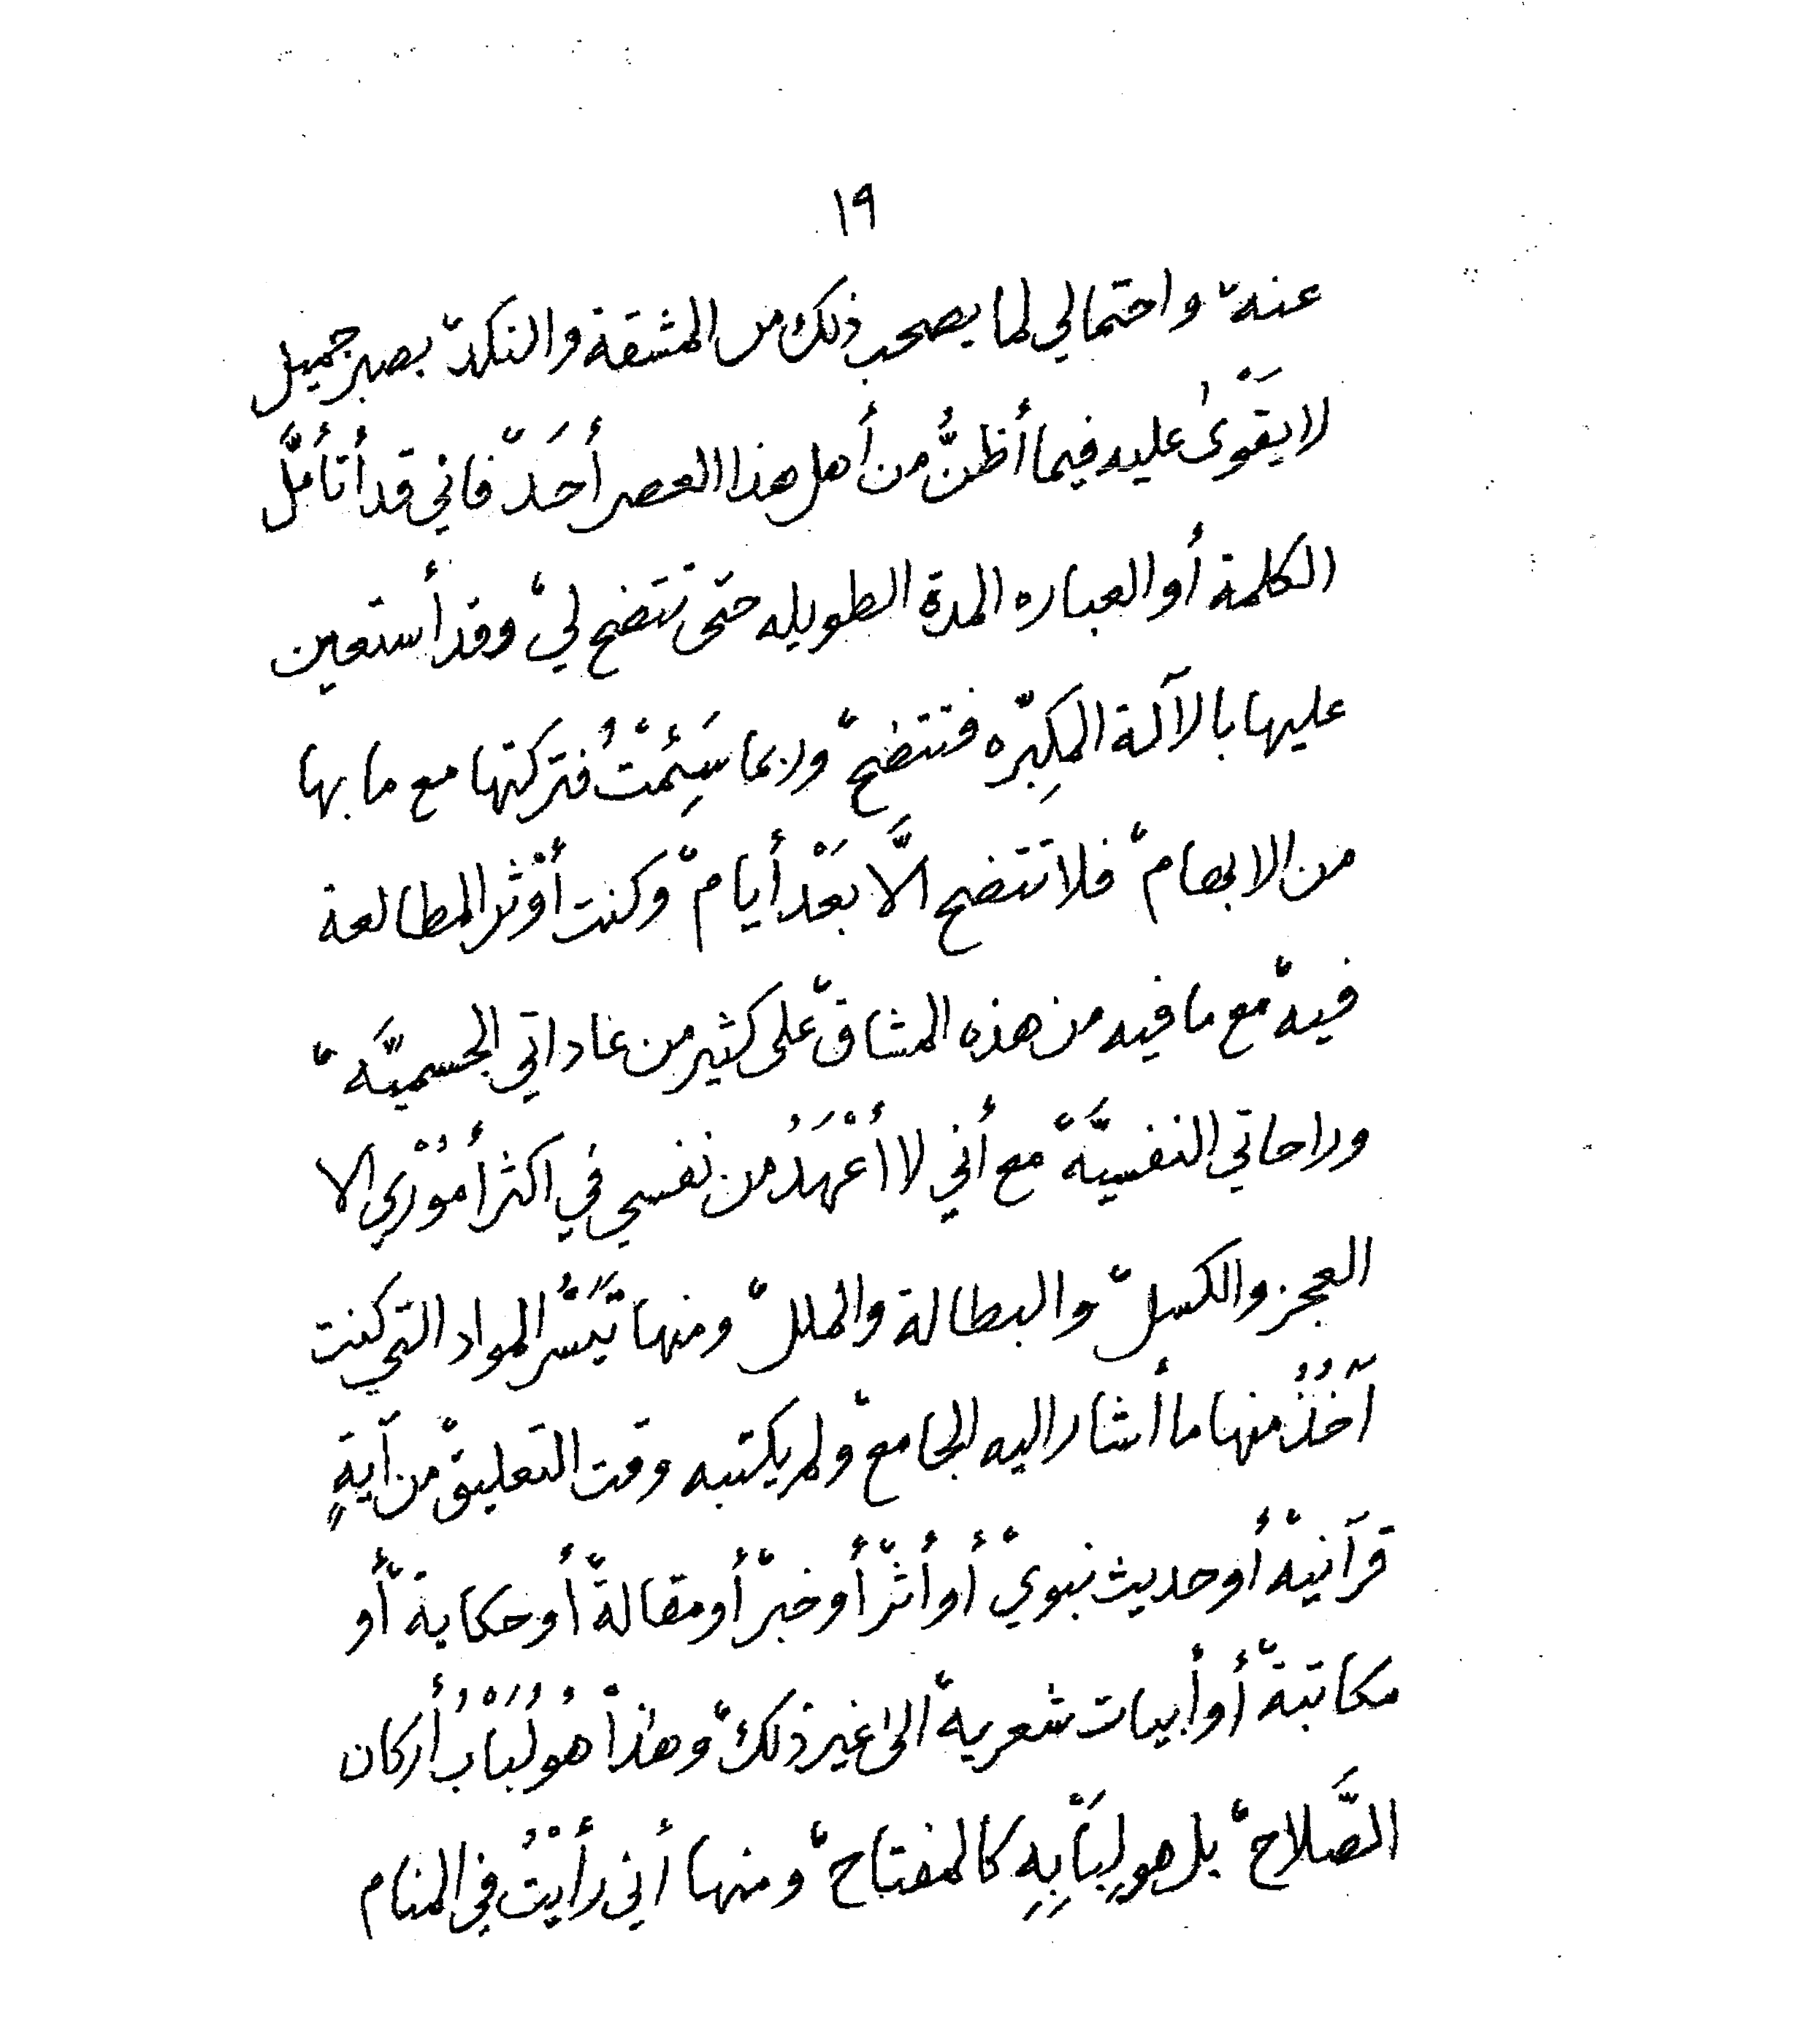 ١٩
عنه، واحتمالي لما يصحب ذلك من المشقة والنكد، بصبر جميل
لا يَقَوْىٰ عليه فيما أظنُّ من أهل هذا العصر أحَد، فاني قد أتأمَّل
الكلمة أو العباره المدة الطويله حتى تتضح لي، وقد أستعين
عليها بالآلة المكِبّره فتتضح، وربما سَئِمْتُ فتركتها مع ما بها
من الابهام، فلا تتضح الَّا بَعْد أيام، وكنت أوْثر المطالعة
فيه، مع ما فيه من هذه المشاق، على كثير من عاداتي الجسميَّه،
وراحاتي النفسيَّة، مع أني لا أعْهَدُ من نفسي في اكثر أمُوْرِي الا
العجز والكسل، والبطالة والملل، ومنها تَيَسُّر المواد التي كنت
آخُذُ منها ما أشار اليه الجامع، ولم يكتبه وقت التعليق، من آيةٍ
قرآنيه، أو حديث نبوي، أو أثر، أو خبر، أو مقالة، أو حكاية، أو
مكاتبة، أو أبيات شعرية، الىٰ غير ذلك، وهٰذا هُو لُبَاْبُ أركان
الصَّلاح، بل هو لِبَاْبِهِ كالمفتاح، ومنها أني رأيْتُ في المنام